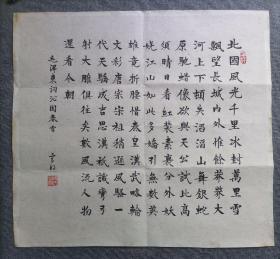 北國風光千里冰封萬里雪
飄望長城內外惟餘莽莽大
河上下頓失滔滔山舞銀蛇
原馳蠟像欲與天公試比高
須晴日看紅裝素裹分外妖
嬈江山如此多嬌引無數英
雄竟折腰惜秦皇漢武略輸
文彩唐宗宋祖稍遜風騷一
代天驕成吉思漢祇識彎弓
射大雕俱往矣數風流人物
還看今朝
毛澤東詞沁園春雪